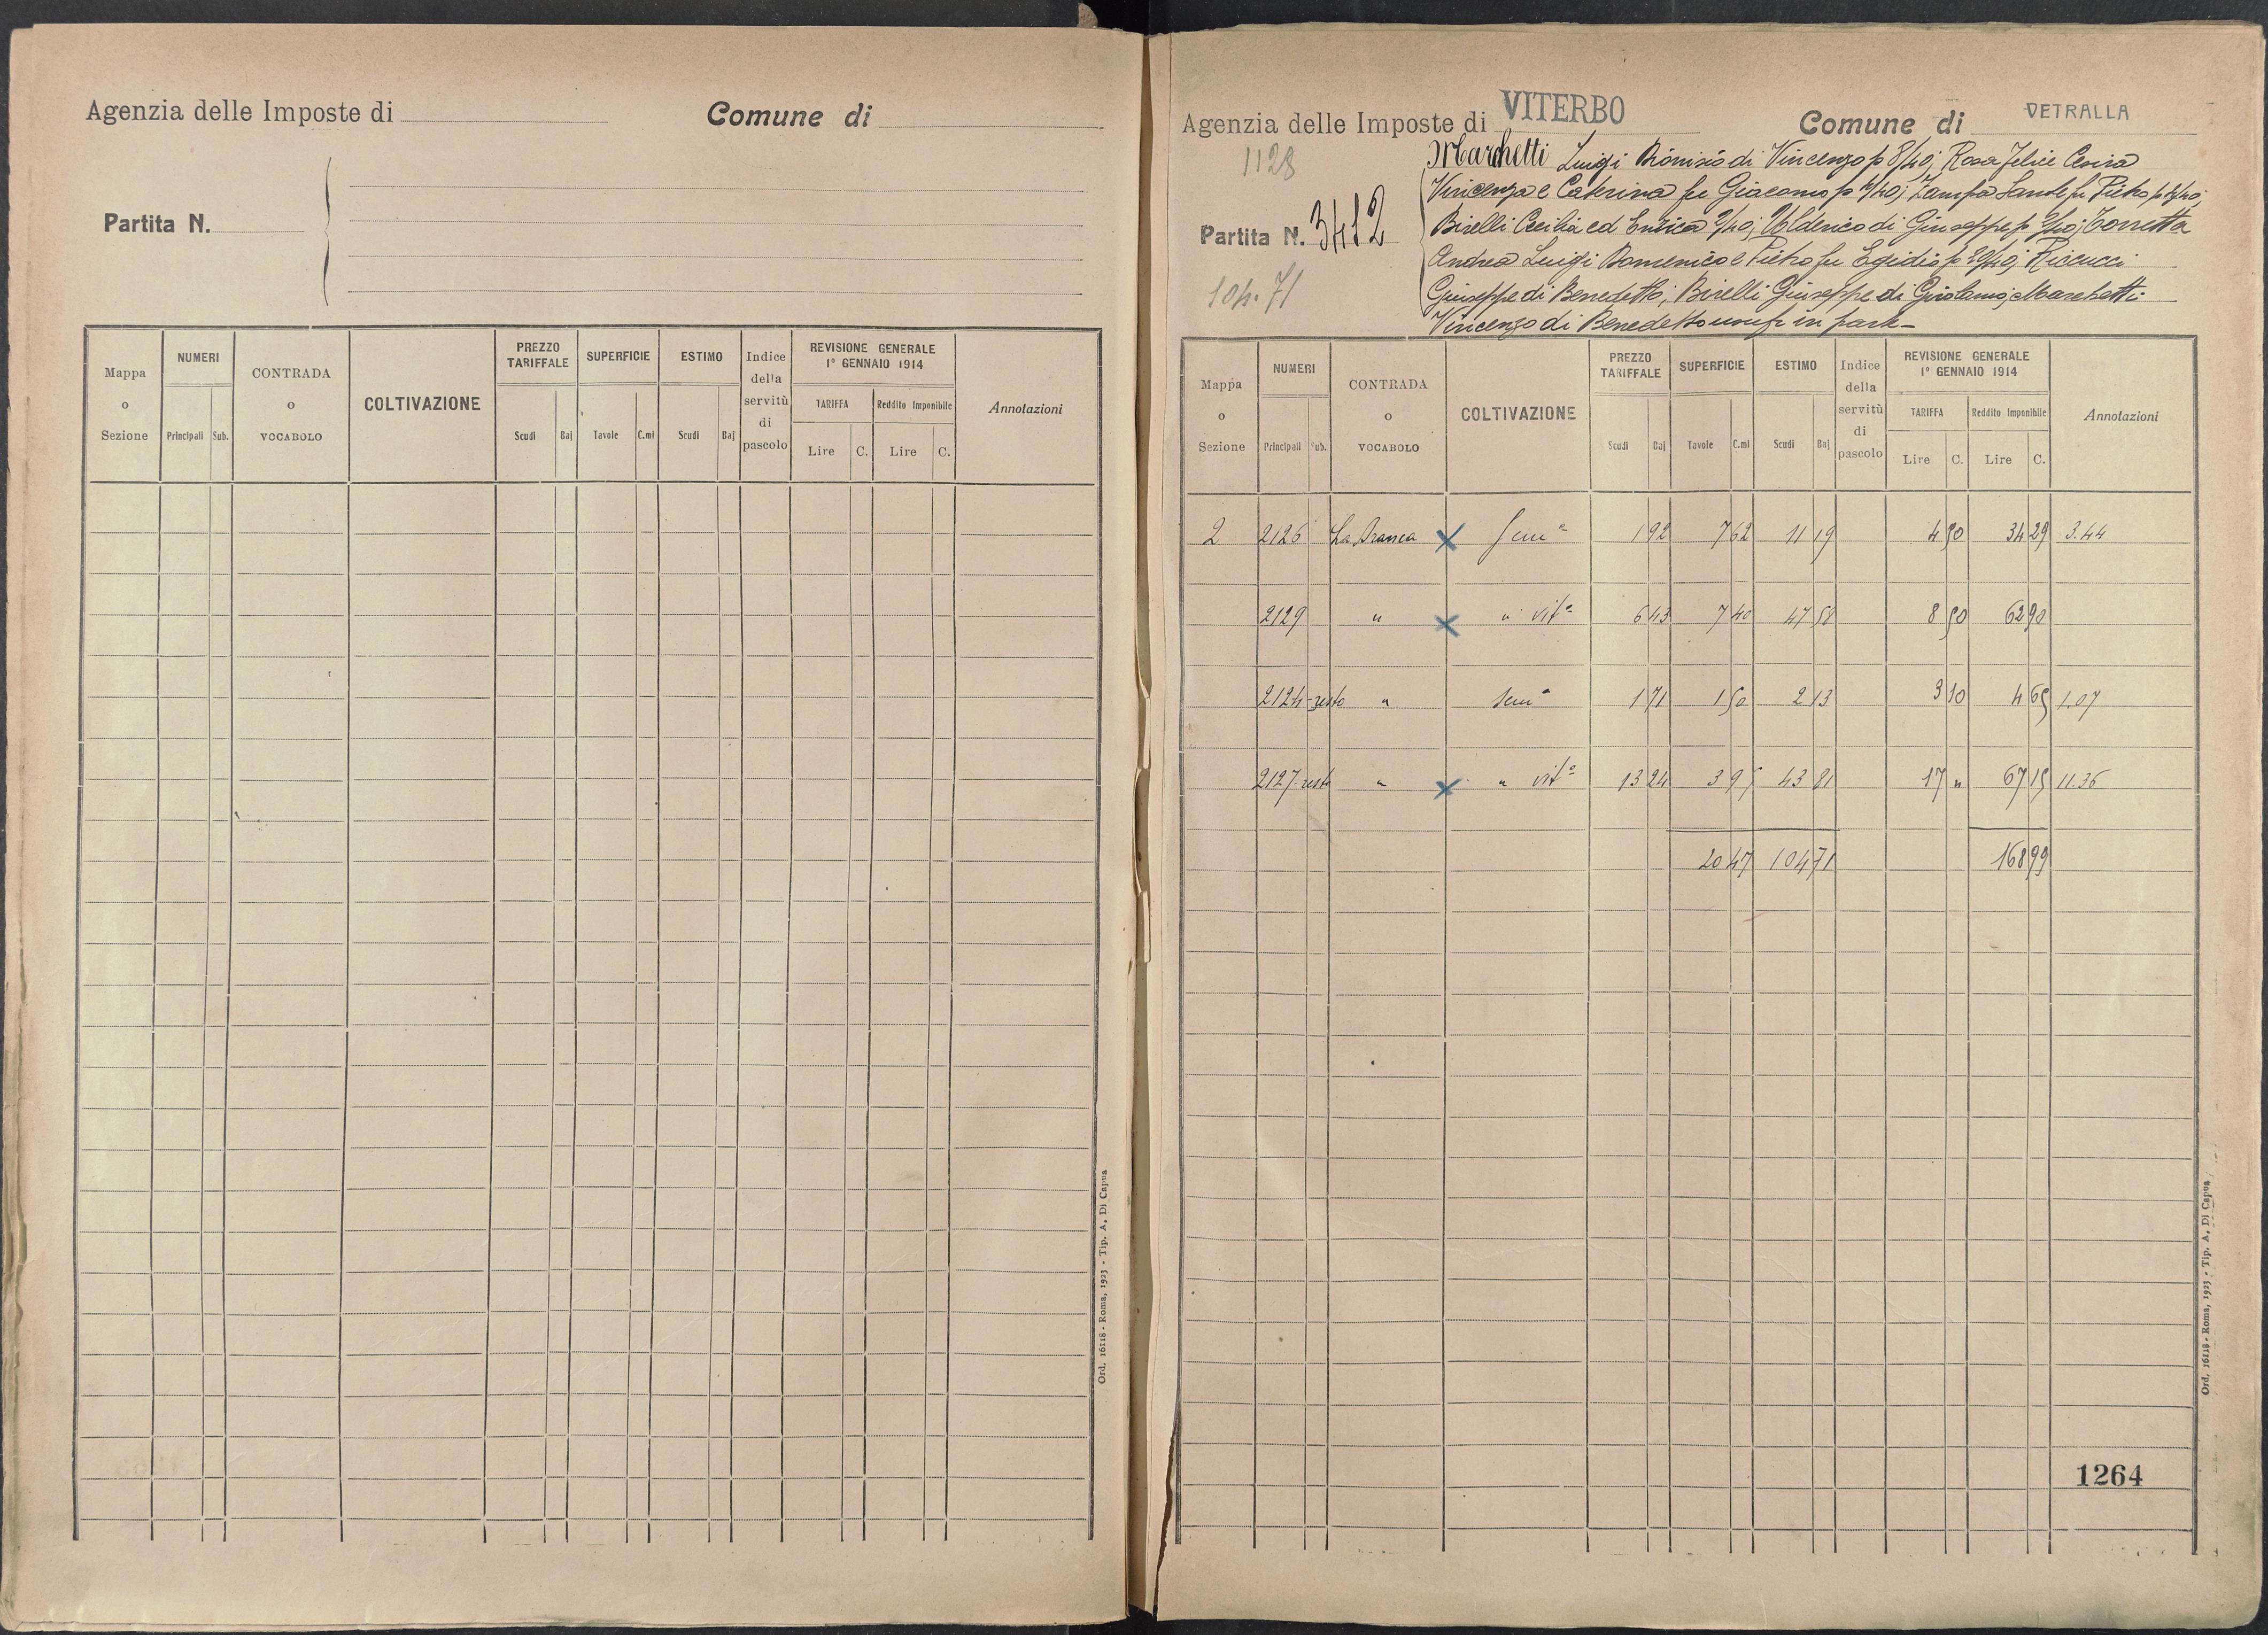 Agenzia delle Imposte di Comune di
Partita N.
Mappa o Sezione NUMERI Principali Sub. CONTRADA o VOCABOLO COLTIVAZIONE PREZZO TARIFFALE Scudi Baj SUPERFICIE Tavole C.mi ESTIMO Scudi Baj Indice della servitù di pascolo REVISIONE GENERALE 1° GENNAIO 1914 TARIFFA Lire C. Reddito Imponibile Lire C. Annotazioni
Ord. 16118 - Roma, 1923 - Tip. A. Di Capua
Agenzia delle Imposte di VITERBO Comune di VETRALLA
1128
Partita N. 3412
104.71
Marchetti Luigi Dionisio di Vincenzo p 8/40; Rosa Felice Cesira
Vincenza e Caterina fu Giacomo p /40; Zampa Sante fu Pietro p /40;
Birelli Cecilia ed Enrica 2/40; Ulderico di Giuseppe p 2/40; Torretta
Andrea Luigi Domenico e Pietro fu Egidio p 20/40; Riccucci
Giuseppe di Benedetto; Birelli Giuseppe di Girolamo; Marchetti
Vincenzo di Benedetto usuf. in parte
Mappa o Sezione NUMERI Principali Sub. CONTRADA o VOCABOLO COLTIVAZIONE PREZZO TARIFFALE Scudi Baj SUPERFICIE Tavole C.mi ESTIMO Scudi Baj Indice della servitù di pascolo REVISIONE GENERALE 1° GENNAIO 1914 TARIFFA Lire C. Reddito Imponibile Lire C. Annotazioni
2 2126 La Branca x Semo 1 92 7 62 11 19 4 50 34 29 3.44
2129 " x " vito 6 43 7 40 47 58 8 50 62 90
2124 resto " Semo 1 71 1 50 2 13 3 10 4 65 1.07
2127 resto " x " vito 13 24 3 95 43 81 17 " 67 15 11.36
20 47 104 71 168 99
1264
Ord. 16118 - Roma, 1923 - Tip. A. Di Capua